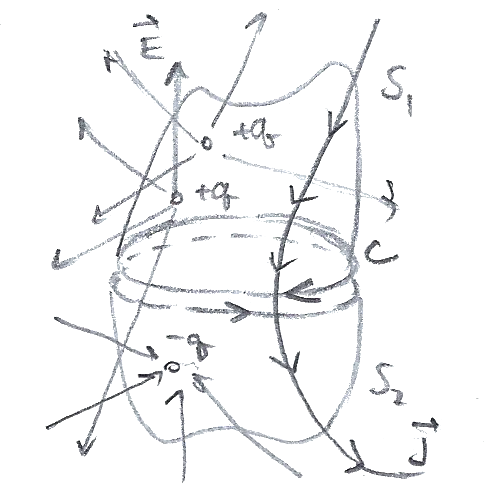 E⃗
S₁
+q
+q
C
-q
S₂
J⃗